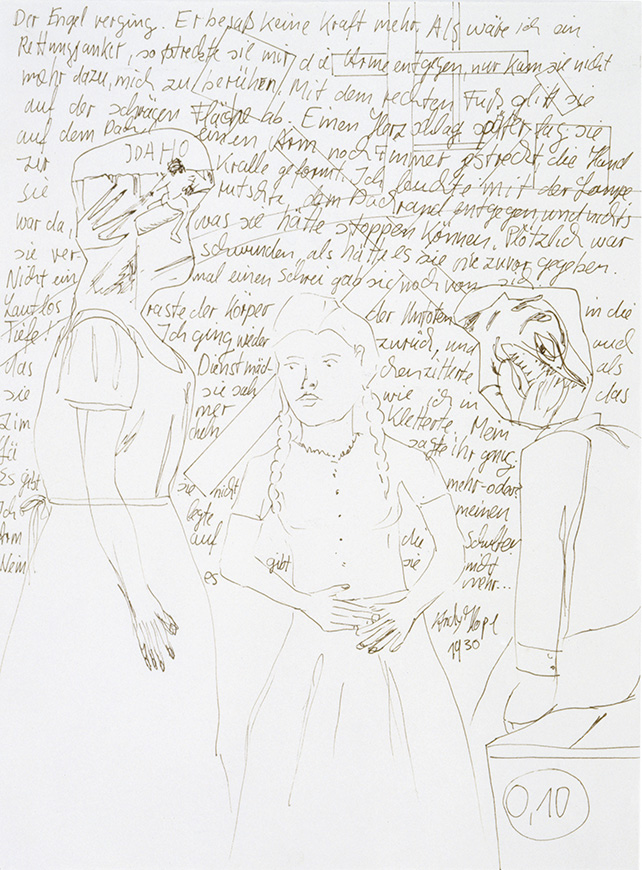 Der Engel verging. Er besaß keine Kraft mehr. Als wäre ich ein
Rettungsanker, so streckte sie mir die Arme entgegen, nur kam sie nicht
mehr dazu, mich zu berühren. Mit dem rechten Fuß glitt sie
auf der schrägen Fläche ab. Einen Herzschlag später lag sie
auf dem Dach, einen Arm noch immer gestreckt, die Hand
zur IDAHO Kralle geformt. Ich leuchte mit der Lampe
sie rutschte, dem Dachrand entgegen, und nichts
war da, was sie hätte stoppen können. Plötzlich war
sie ver schwunden als hätte es sie nie zuvor gegeben.
Nicht ein mal einen Schrei gab sie noch von sich
Lautlos raste der Körper der Untoten in die
Tiefe! Ich ging wieder zurück, und auch
das Dienstmäd- chen zitterte als
sie sie sah wie ich in das
Zim mer kletterte. Mein
sagte ihr genug
Es gibt sie nicht mehr-oder?
Ich legte meinen
Arm auf die Schulter
Nein es gibt sie nicht
mehr...
1930
0,10